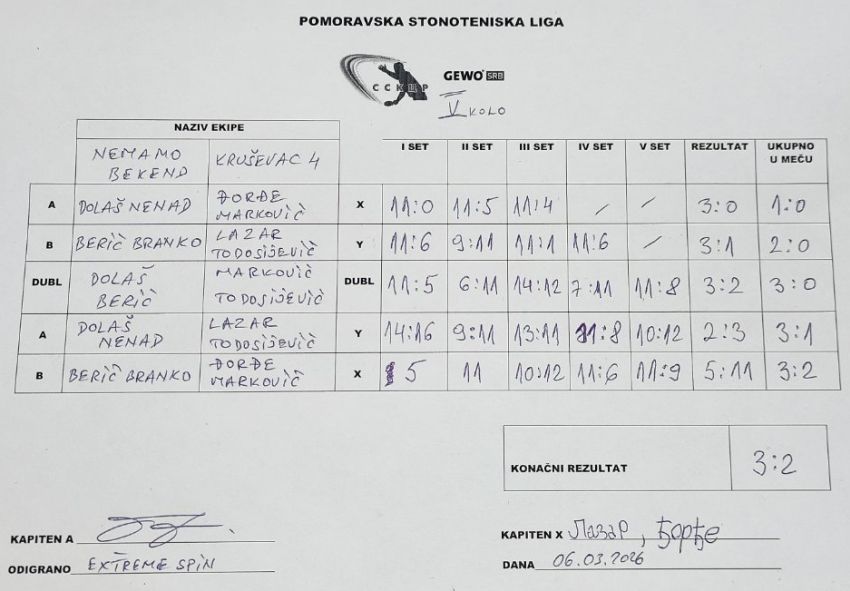 POMORAVSKA STONOTENISKA LIGA
ССКЦР GEWO SRB
V KOLO
NAZIV EKIPE
I SET II SET III SET IV SET V SET REZULTAT UKUPNO U MEČU
NEMAMO BEKEND KRUŠEVAC 4
A DOLAŠ NENAD ĐORĐE MARKOVIČ X 11:0 11:5 11:4 / / 3:0 1:0
B BERIČ BRANKO LAZAR TODOSIJEVIČ Y 11:6 9:11 11:1 11:6 / 3:1 2:0
DUBL DOLAŠ BERIČ MARKOVIČ TODOSIJEVIČ DUBL 11:5 6:11 14:12 7:11 11:8 3:2 3:0
A DOLAŠ NENAD LAZAR TODOSIJEVIČ Y 14:16 9:11 13:11 11:8 10:12 2:3 3:1
B BERIČ BRANKO ĐORĐE MARKOVIČ X 5 11 10:12 11:6 11:9 5:11 3:2
KONAČNI REZULTAT 3:2
KAPITEN A
KAPITEN X Лазар, Ђорђе
ODIGRANO EXTREME SPIN
DANA 06.03.2026